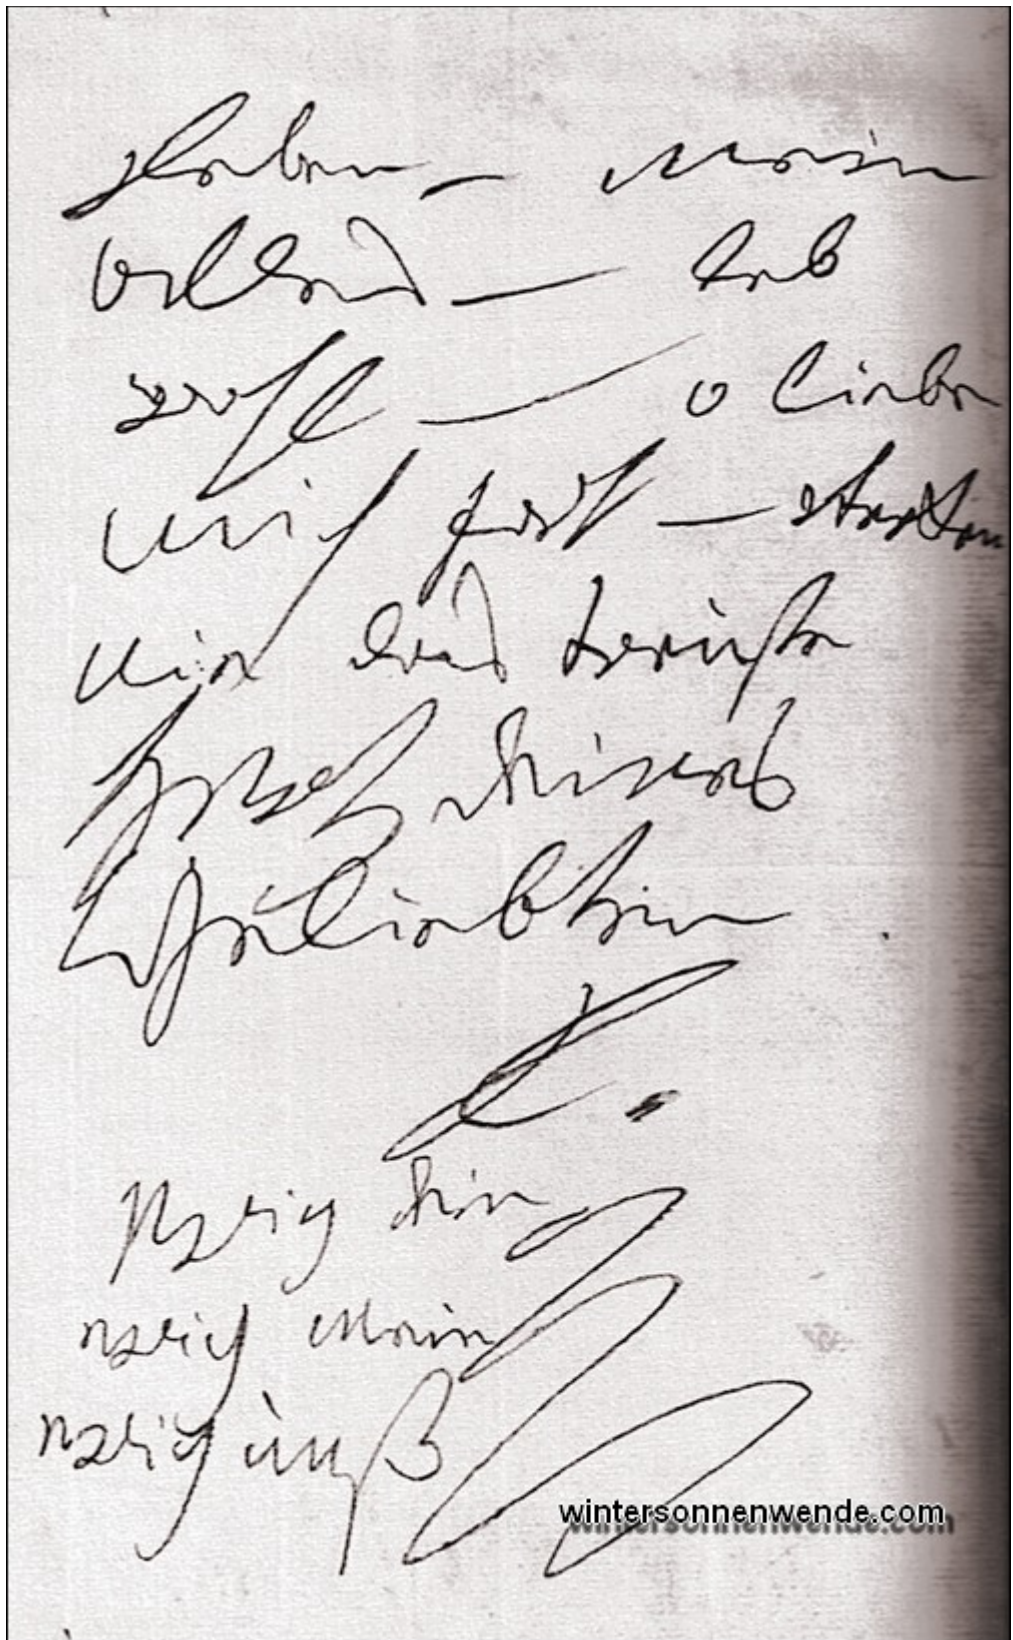 Leben – mein
alles – leb
wohl – o liebe
mich fort – verken
nie das treuste
Herz deines
Geliebten
L.
ewig dein
ewig mein
ewig unß
wintersonnenwende.com